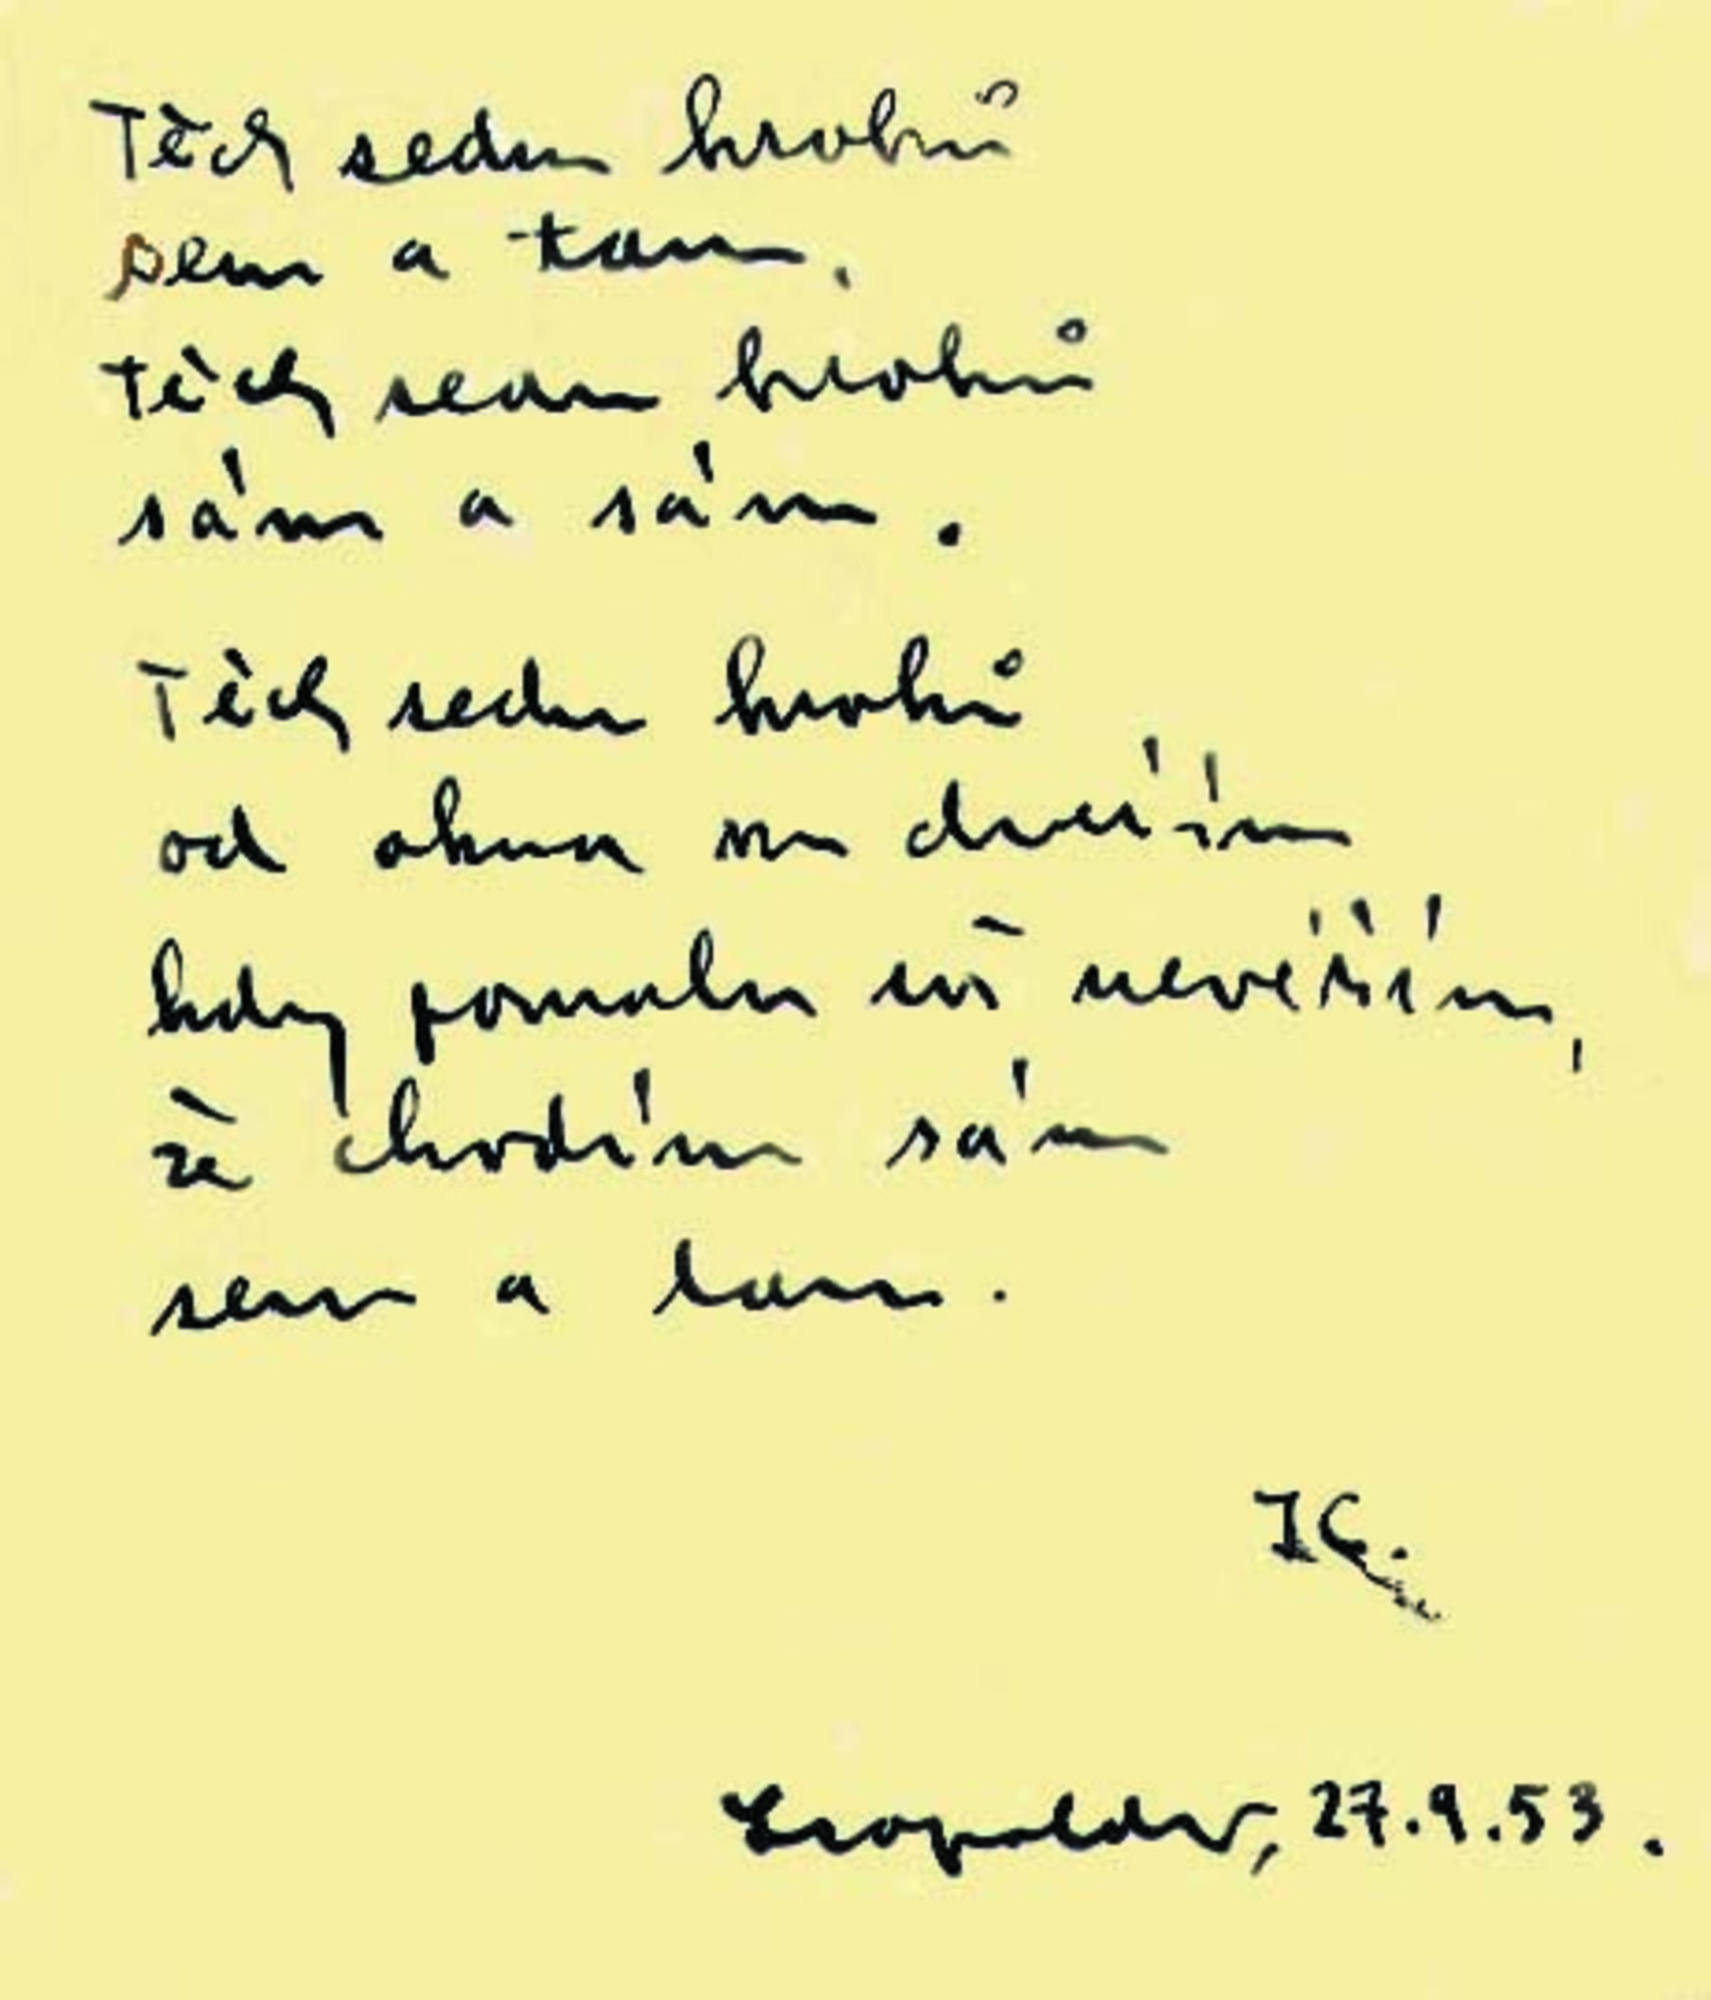 Těch sedm kroků
sem a tam,
těch sedm kroků
sám a sám.
Těch sedm kroků
od okna ke dveřím
kdy pomalu už nevěřím,
že chodím sám
sem a tam.
Leopoldov, 27.9.53.